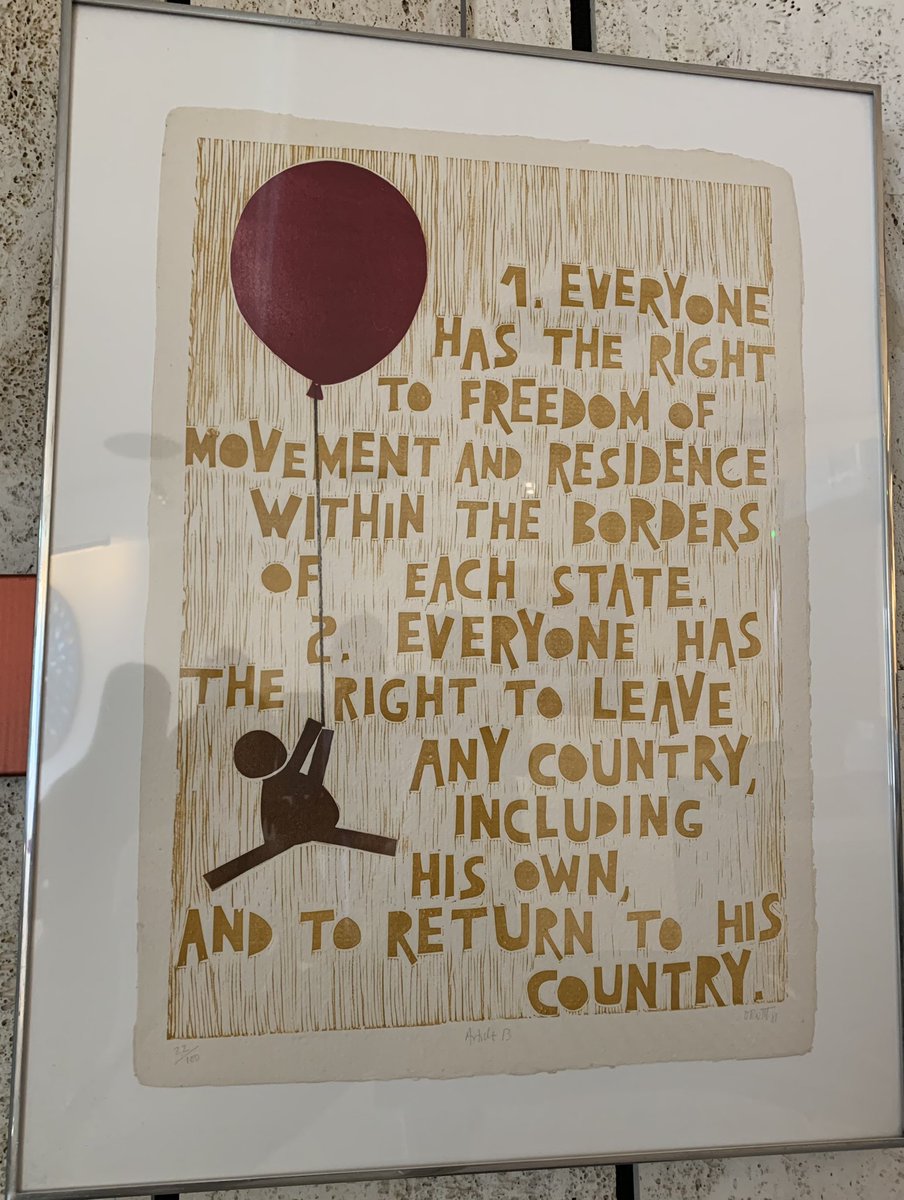 1. EVERYONE
HAS THE RIGHT
TO FREEDOM OF
MOVEMENT AND RESIDENCE
WITHIN THE BORDERS
OF EACH STATE.
2. EVERYONE HAS
THE RIGHT TO LEAVE
ANY COUNTRY,
INCLUDING
HIS OWN,
AND TO RETURN TO HIS
COUNTRY.
22/100
Article 13